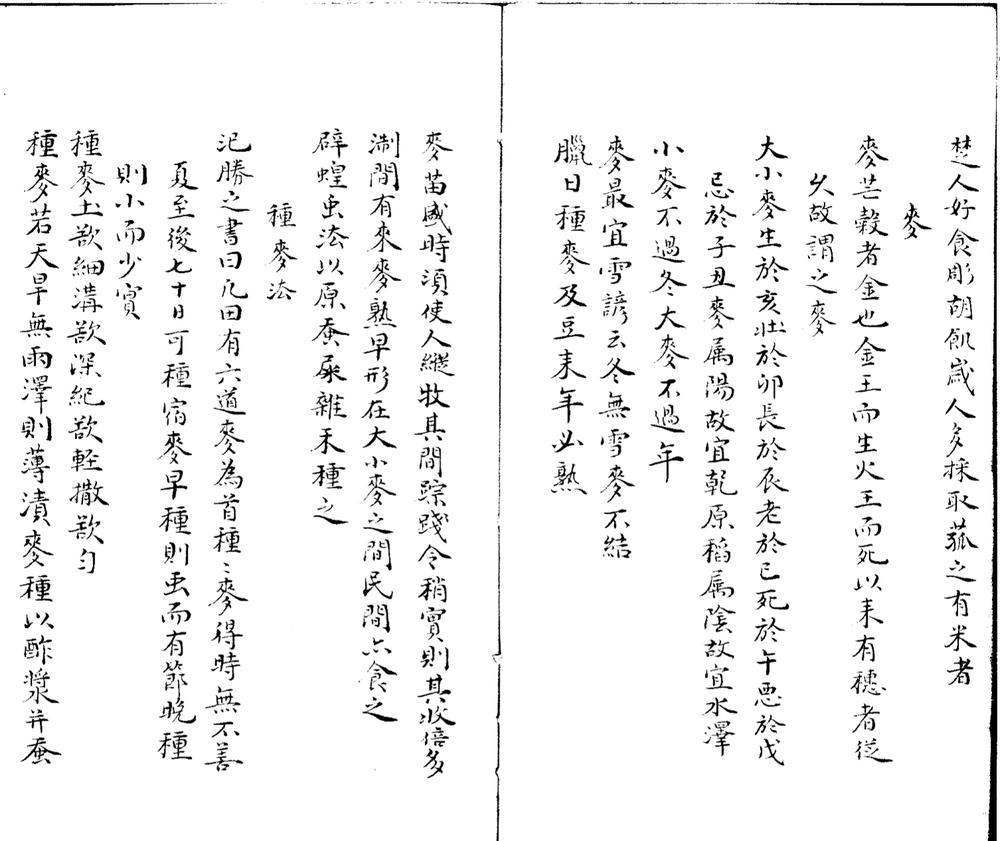 楚人好食彫胡飢嵗人多採取菰之有米者
麥
麥芒穀者金也金王而生火王而死以耒有穗者従
夂故謂之麥
大小麥生於亥壯於卯長於辰老於巳死於午悪於戊
忌於子丑麥属陽故宜乾原稻属陰故宜水澤
小麥不過冬大麥不過年
麥最宜雪諺云冬無雪麥不結
臘日種麥及豆耒年必熟
麥苗盛時湏使人縱牧其間踪踐令稍實則其收倍多
淛間有來麥熟早形在大小麥之間民間亦食之
辟蝗虫法以原蚕屎雜禾種之
種麥法
氾勝之書曰凢田有六道麥為首種〻麥得時無不善
夏至後七十日可種宿麥早種則虫而有節晩種
則小而少實
種麥土欲細溝欲深紀欲輕撒欲匀
種麥若天旱無雨澤則薄漬麥種以酢漿并蚕